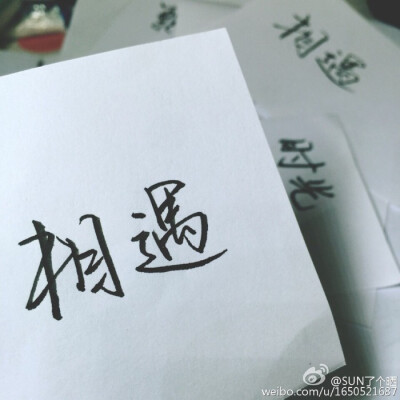 相遇
时光
相遇
@SUN了个腾
weibo.com/u/1650521687